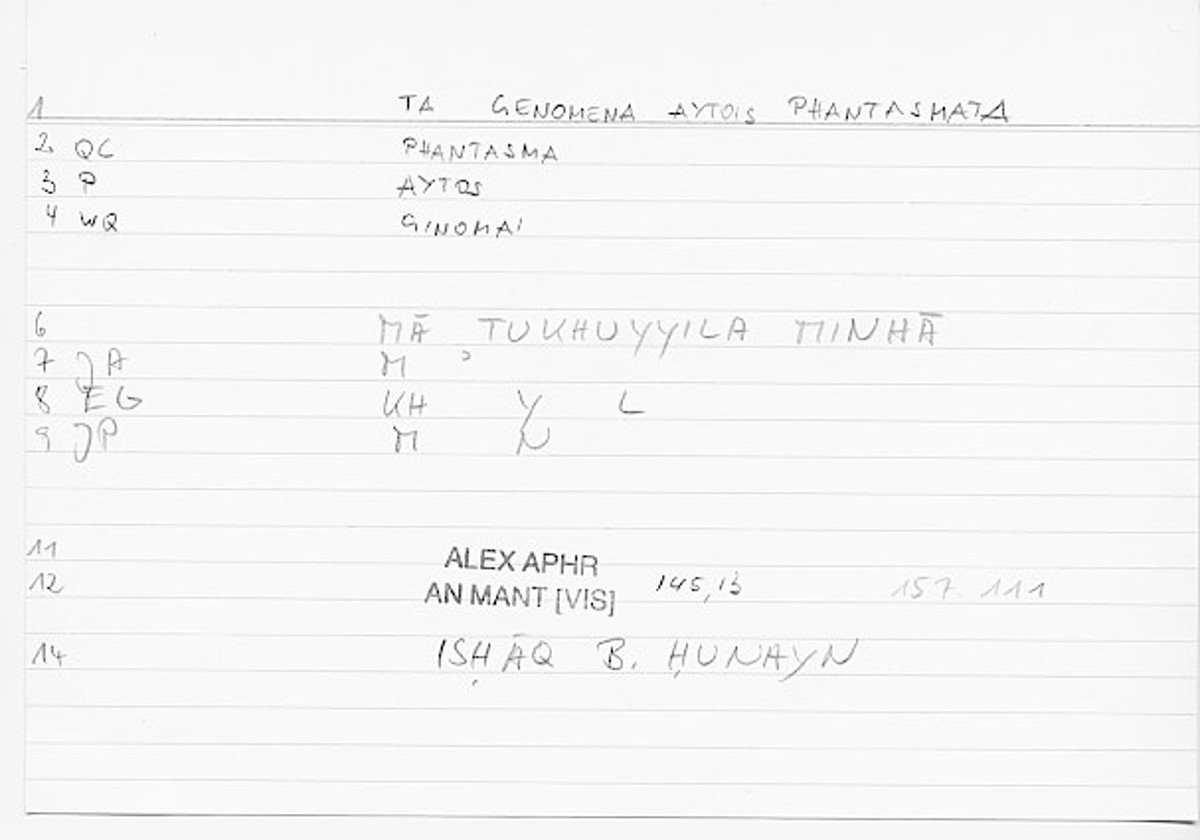 1 TA GENOMENA AYTOIS PHANTASMATA
2 QC PHANTASMA
3 P AYTOS
4 WQ GINOMAI
6 MĀ TUKHUYYILA MINHĀ
7 JA M ʾ
8 EG KH Y L
9 JP M N
11 ALEX APHR
12 AN MANT [VIS] 145,13 157 111
14 ISḤĀQ B. ḤUNAYN